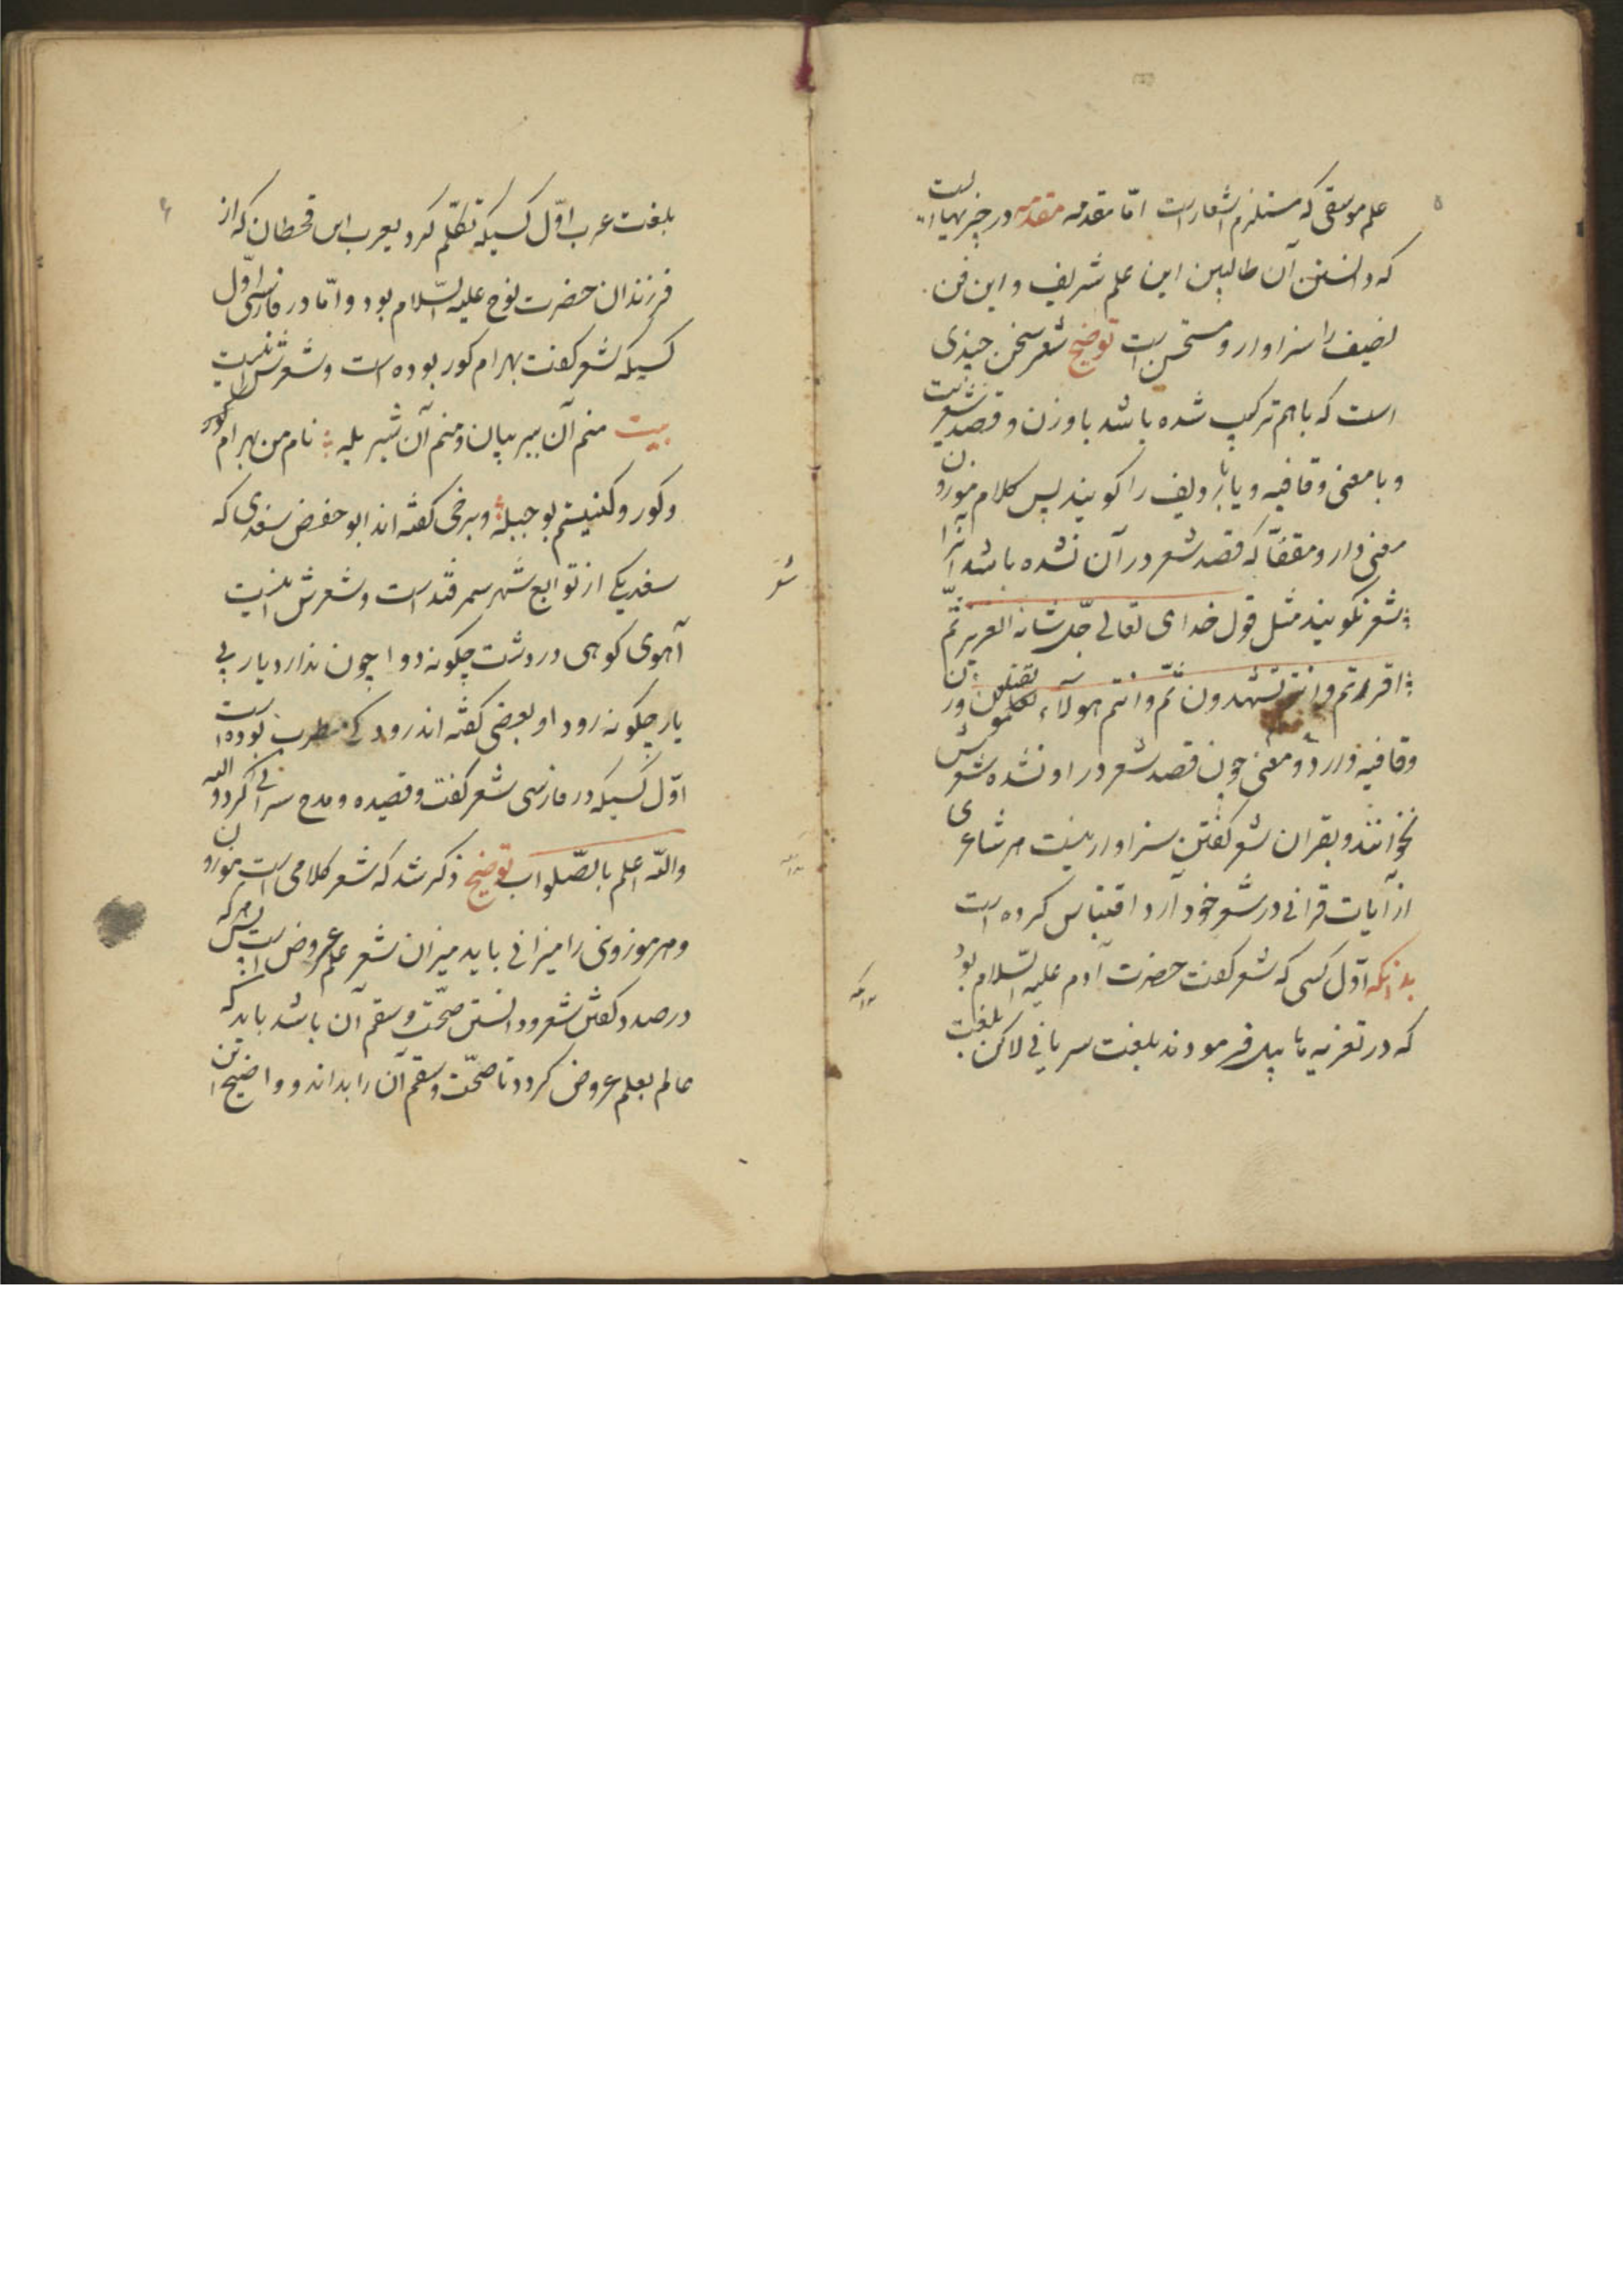 ۵
علم موسیقی که مستلزم اشعار است امّا مقدمه مقدمه در چیزیهاست
که دانستن آن طالبین این علم شریف و این فن
را سزاوار و مستحسن است توضیح شعر سخن چندی
است که باهم ترکیب شده باشد با وزن و قصد شعریت
و با معنی و قافیه و یا با ردیف را کویند پس کلام موزون
معنی دار و مقفّا که قصد شعر در آن نشده باشد آنرا
شعر نکویند مثل قول خدای تعالی جلّ شانه العزیز ثمّ
اقررتم و انتم تشهدون ثمّ و انتم هولآء تقتلون
وقافیه دارد و معنی چون قصد شعر در او نشده شعرش
نخوانند و بقران شعر کفتن سزاوار نیست هر شاعری
از آیات قرانی در شعر خود آرد اقتباس کرده است
بدانکه اوّل کسی که شعر کفت حضرت آدم علیه السّلام بود
که در تعزیه هابیل فرمودند بلغت سریانی لاکن بلغت
۶
بلغت عرب اوّل کسیکه تکلّم کرد یعرب ابن قحطان که از
فرزندان حضرت نوح علیه السّلام بود و امّا در فارسی اوّل
کسیکه شعر کفت بهرام کور بوده است و شعرش اینست
بیت منم آن ببر بیان و منم آن شیر یله نام من بهرام کور
و کور و کنیتم بو جبله و برخی کفته اند ابو حفض سغدی که
سغد یکی از توابع شهر سمرقند است و شعرش اینست
آهوی کوهی در دشت چکونه دوا چون ندارد یار بی
یار چکونه رودا و بعضی کفته اند رودکی مطرب بوده است
اوّل کسیکه در فارسی شعر کفت و قصیده و مدح سرائی کرد و الله
والله اعلم بالصّواب توضیح ذکر شد که شعر کلامی است موزون
و هر موزونی را میزانی باید میزان شعر علم عروض است پس هر که
در صدد کفتن شعر و دانستن صحّت و سقم آن باشد باید که
عالم بعلم عروض کردد تا صحّت و سقم آن را بداند و واضح